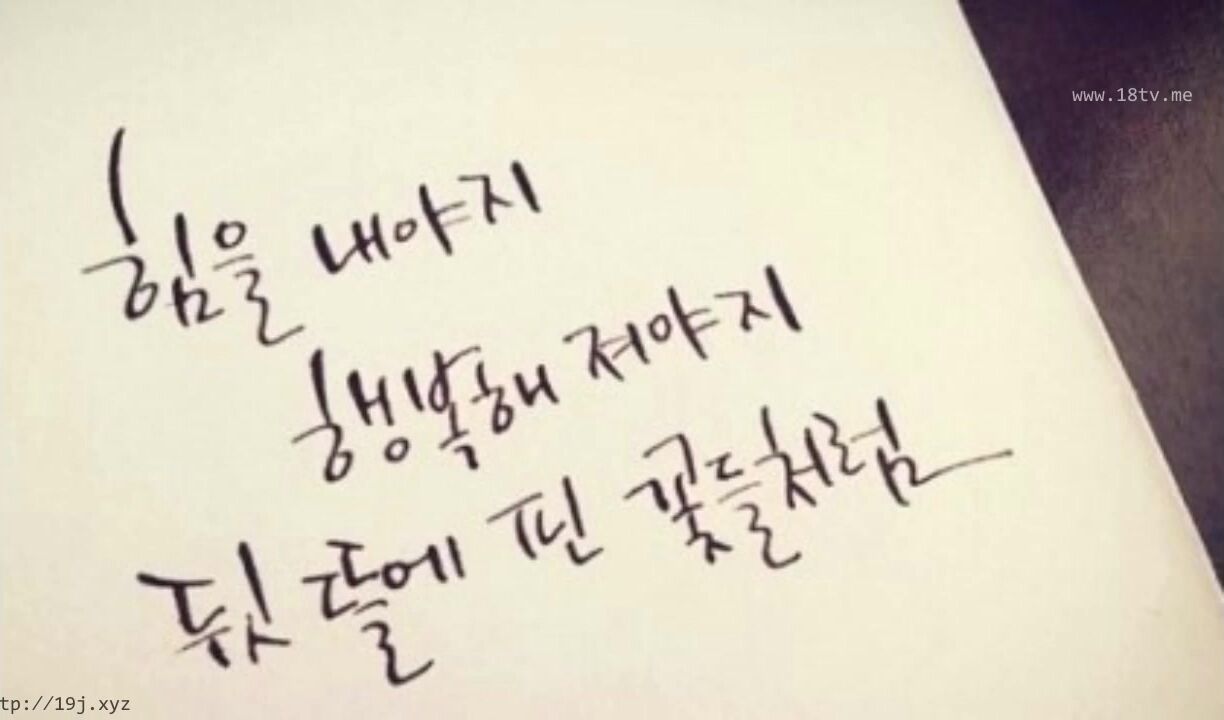 www.18tv.me
힘을 내야지
행복해 져야지
뒷 뜰에 핀 꽃들처럼
tp://19j.xyz